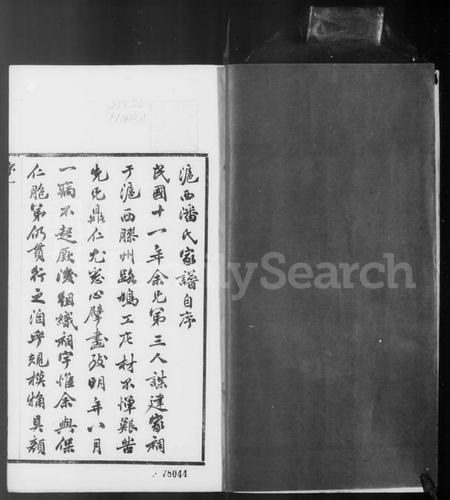 滬西潘氏家譜自序
民國十一年余兄弟三人謀建家祠
于滬西膠州路鳩工庀材不憚艱苦
先兄鼎仁尤悉心擘畫致明年八月
一病不起厥後組織祠宇惟余與保
仁胞弟仍貫行之洎乎規模觕具顏
序一
78044
FamilySearch